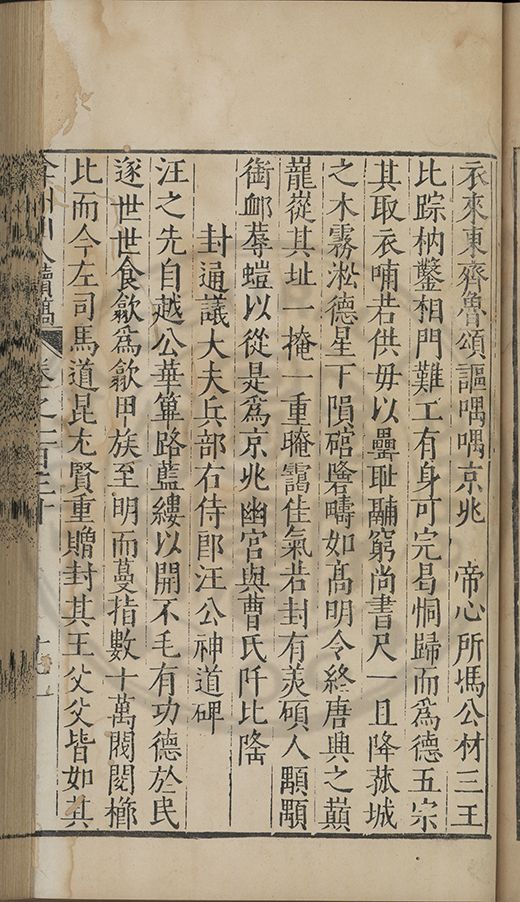 衣來東齊魯頌謳喁喁京兆　帝心所馮公材三王
比踪枘鑿相門難工有身可完曷恫歸而爲德五宗
其取衣哺若供毋以罍耻翮窮尚書尺一且降菰城
之木霧淞德星下隕硿礲疇如高明令終唐興之巔
龍從其址一掩一重晻靄佳氣若封有羨碩人顒顒
銜卹蓐螘以從是爲京兆幽宮與曹氏阡比隆
封通議大夫兵部右侍郎汪公神道碑
汪之先自越公華篳路藍縷以開不毛有功德於民
遂世世食歙爲歙甲族至明而蔓指數十萬閥閱櫛
比而今左司馬道昆尤賢重贈封其王父父皆如其
弇州山人續稿
卷之一百三十